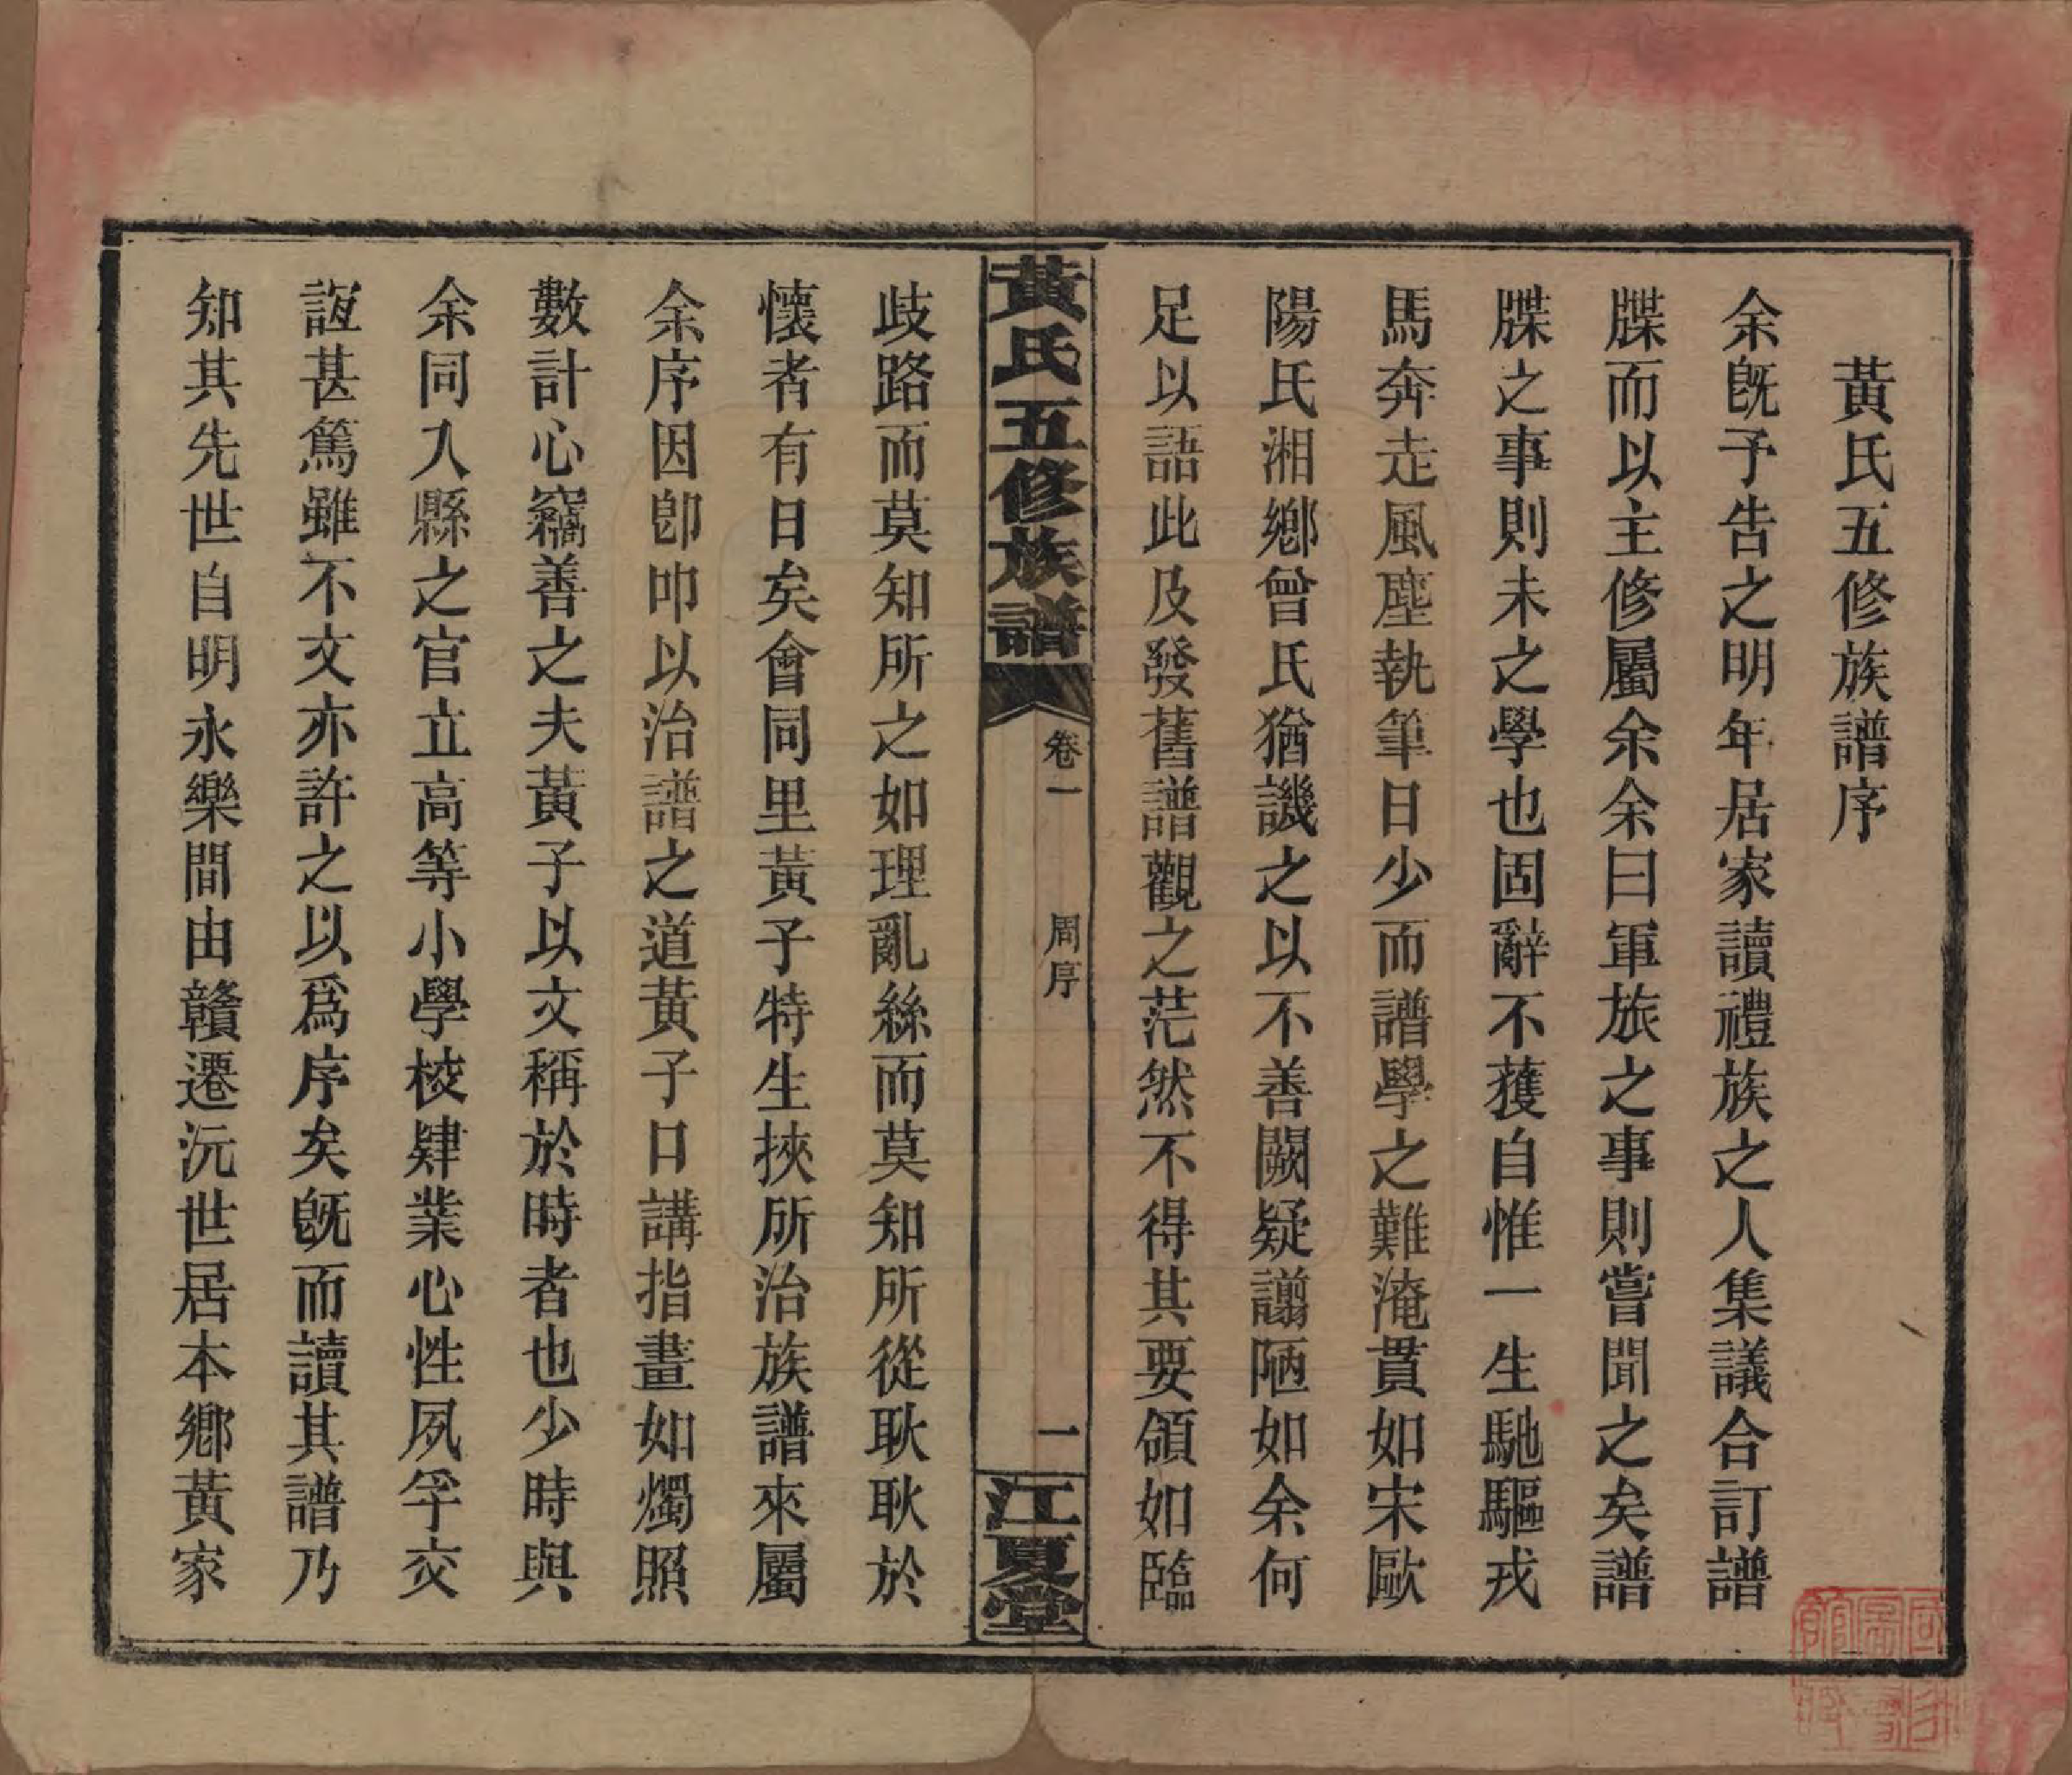 黃氏五修族譜序
余旣予告之明年居家讀禮族之人集議合訂譜
牒而以主修屬余余曰軍旅之事則嘗聞之矣譜
牒之事則未之學也固辭不獲自惟一生馳驅戎
馬奔走風塵執筆日少而譜學之難淹貫如宋歐
陽氏湘鄉曾氏猶譏之以不善闕疑謭陋如余何
足以語此及發舊譜觀之茫然不得其要領如臨
黃氏五修族譜
卷一
周序
一
江夏堂
歧路而莫知所之如理亂絲而莫知所從耿耿於
懷者有日矣會同里黃子特生挾所治族譜來屬
余序因卽叩以治譜之道黃子口講指畫如燭照
數計心竊善之夫黃子以文稱於時者也少時與
余同入縣之官立高等小學校肄業心性夙孚交
誼甚篤雖不文亦許之以爲序矣旣而讀其譜乃
知其先世自明永樂間由贛遷沅世居本鄉黃家